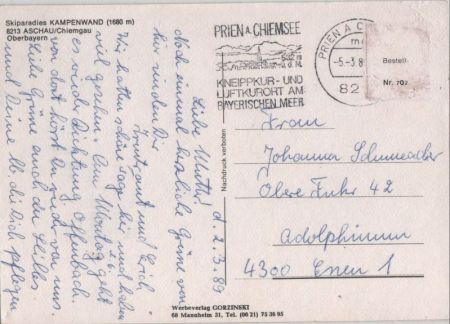 Skiparadies KAMPENWAND (1680 m)
8213 ASCHAU/Chiemgau
Oberbayern
d. 2.3.89
Liebe Mutti!
Noch einmal herzliche Grüße von
hier senden Dir
Traute und Erich.
Wir hatten schöne Tage hier und haben
viel gesehen. Am Montag geht
es wieder Richtung Offenbach.
von dort hörst Du mehr von uns.
Liebe Grüße auch die
und Deine lb. die Dich pflegen
Nachdruck verboten
PRIEN A. CHIEMSEE
KNEIPPKUR- UND
LUFTKURORT AM
BAYERISCHEN MEER
PRIEN A C
-5.-3.8
82
Bestell-
Nr. 702
Frau
Johanna Schumacher
Obere Fuhr 42
Adolphinum
4300 Essen 1
Werbeverlag GORZINSKI
68 Mannheim 31, Tel. (06 21) 75 36 95